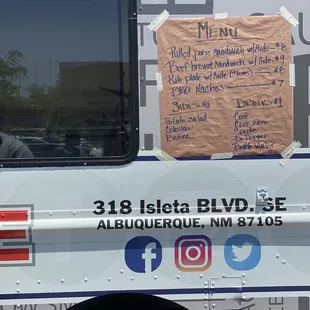 MENU
Pulled pork Sandwich w/Side - $8
Beef brisket Sandwich w/Side - $9
Rib plate w/Side - $8
BBQ Nachos - $7
SIDES $2
DRINKS $1
Potato salad
Coke
Coleslaw
Coke Zero
Beans
Sprite
Dr. Pepper
Bottle Water
318 Isleta BLVD. SE
ALBUQUERQUE, NM 87105